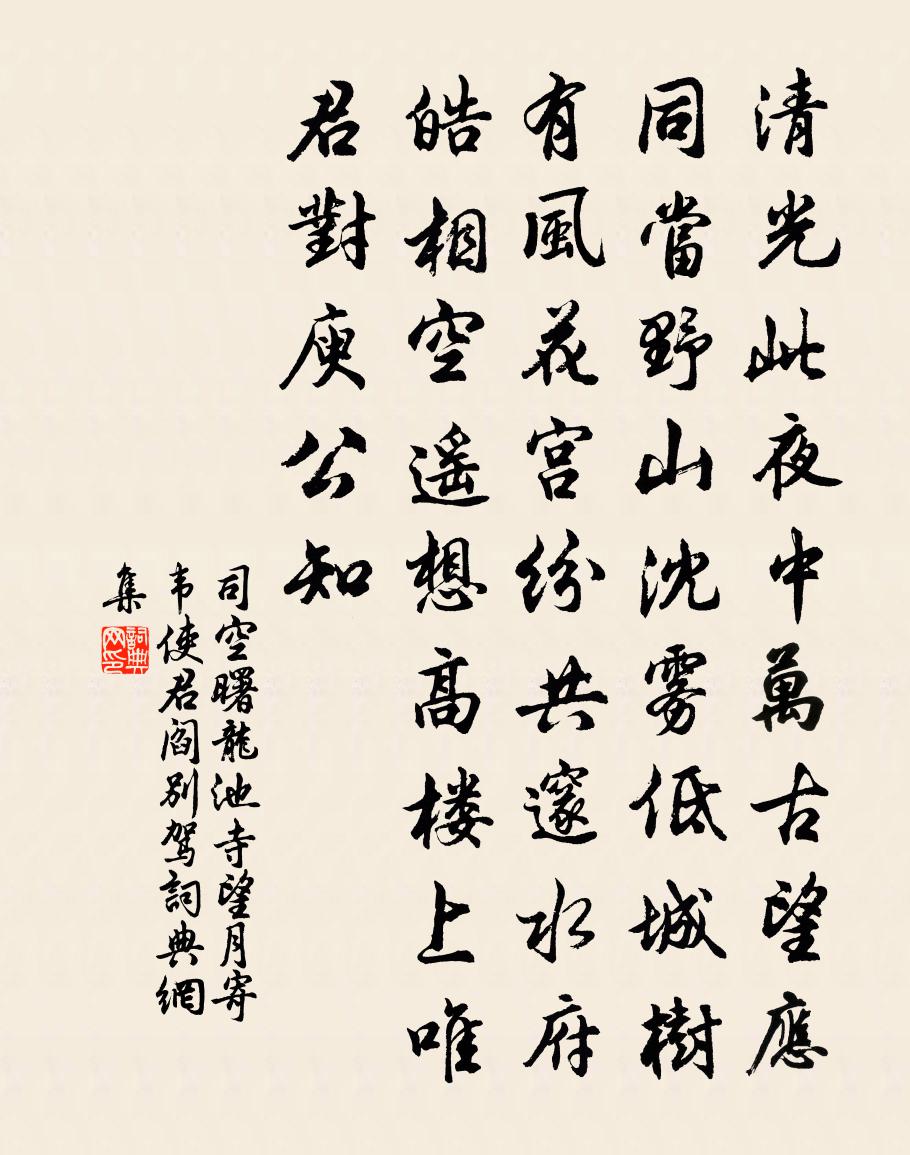 清光此夜中萬古望應
同當野山沈雾低城樹
有風花宫紛共邃水府
皓相空遥想高楼上唯
君對庾公知
司空曙龍池寺望月寄
韦使君閻别駕詞典網
集
詞典网印